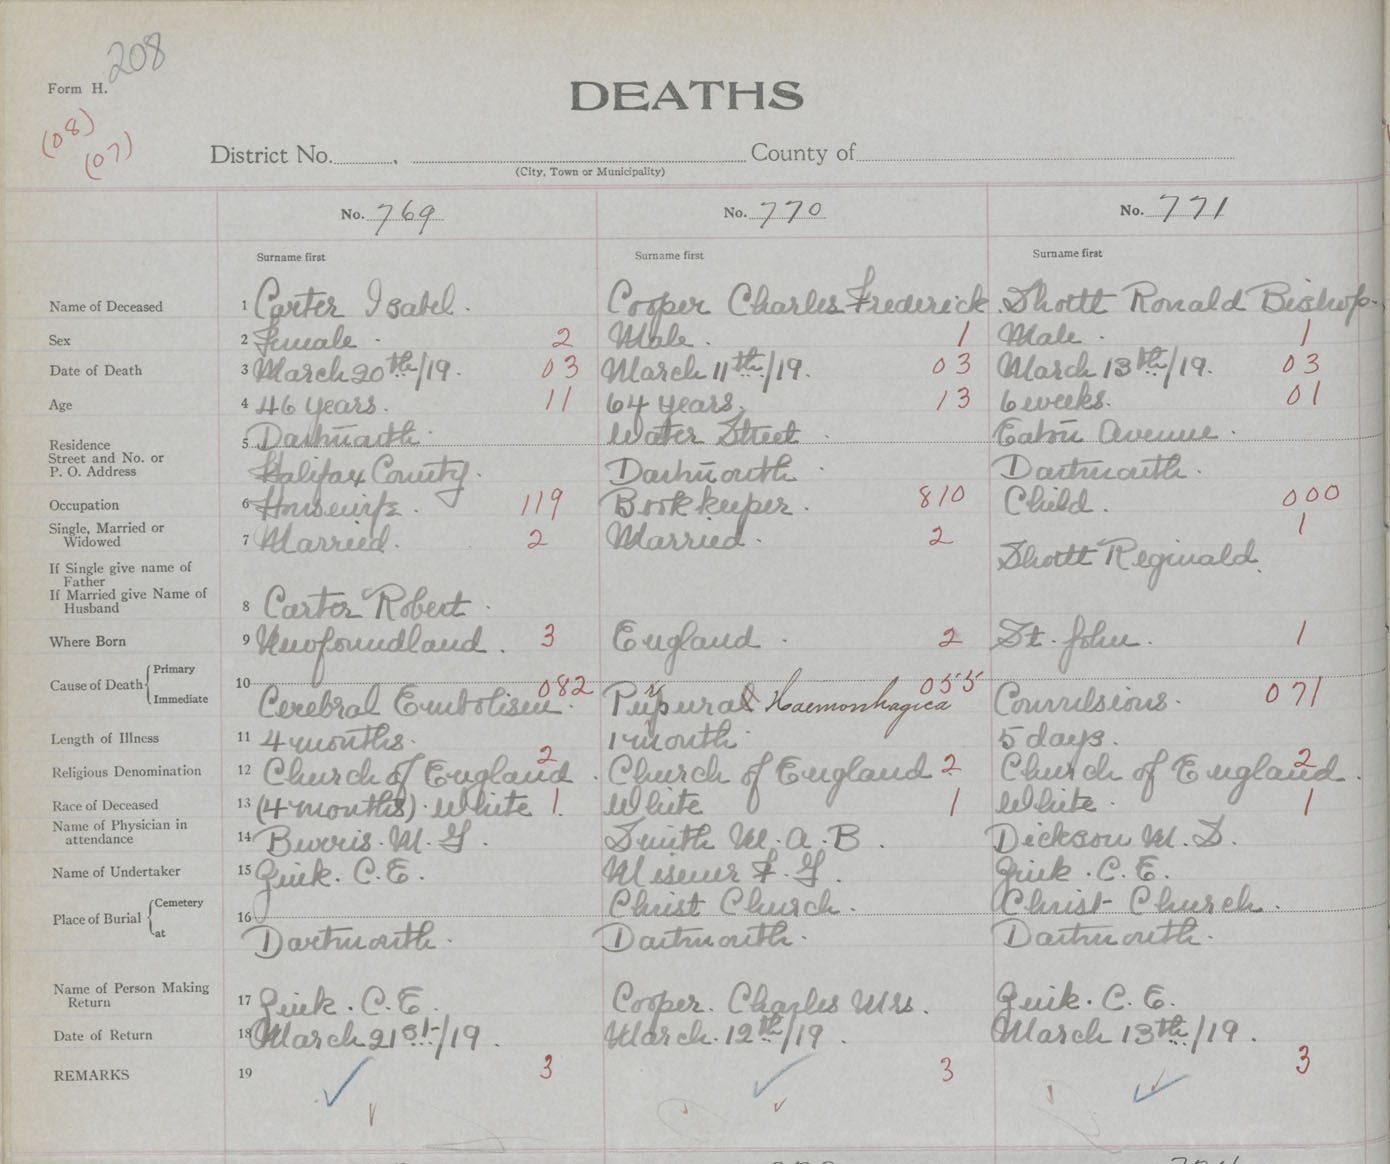 208
Form H.
DEATHS
(08)
(07)
District No. , County of
(City, Town or Municipality)
No. 769 No. 770 No. 771
Surname first Surname first Surname first
Name of Deceased 1 Carter Isabel. Cooper Charles Frederick. Shortt Ronald Bishop.
Sex 2 Female. 2 Male. 1 Male. 1
Date of Death 3 March 20th/19. 03 March 11th/19. 03 March 13th/19. 03
Age 4 46 years. 11 64 years. 13 6 weeks. 01
Residence 5 Dartmouth. Water Street. Eaton Avenue.
Street and No. or
P. O. Address Halifax County. Dartmouth. Dartmouth.
Occupation 6 Housewife. 119 Bookkeeper. 810 Child. 000
Single, Married or
Widowed 7 Married. 2 Married. 2 1
If Single give name of
Father Shortt Reginald.
If Married give Name of
Husband 8 Carter Robert.
Where Born 9 Newfoundland. 3 England. 2 St. John. 1
Cause of Death Primary
Immediate 10 Cerebral Embolism. 082 Purpura Haemorrhagica 055 Convulsions. 071
Length of Illness 11 4 months. 1 month. 5 days.
Religious Denomination 12 Church of England. 2 Church of England 2 Church of England. 2
Race of Deceased 13 (4 months). White 1. White 1 White. 1
Name of Physician in
attendance 14 Burris. M. G. Smith M. A. B. Dickson M. S.
Name of Undertaker 15 Zink. C. E. Misener F. G. Zink. C. E.
Place of Burial Cemetery 16 Christ Church. Christ Church.
at Dartmouth. Dartmouth. Dartmouth.
Name of Person Making
Return 17 Zink. C. E. Cooper. Charles Mrs. Zink. C. E.
Date of Return 18 March 21st/19. March. 12th/19. March 13th/19.
REMARKS 19 3 3 3